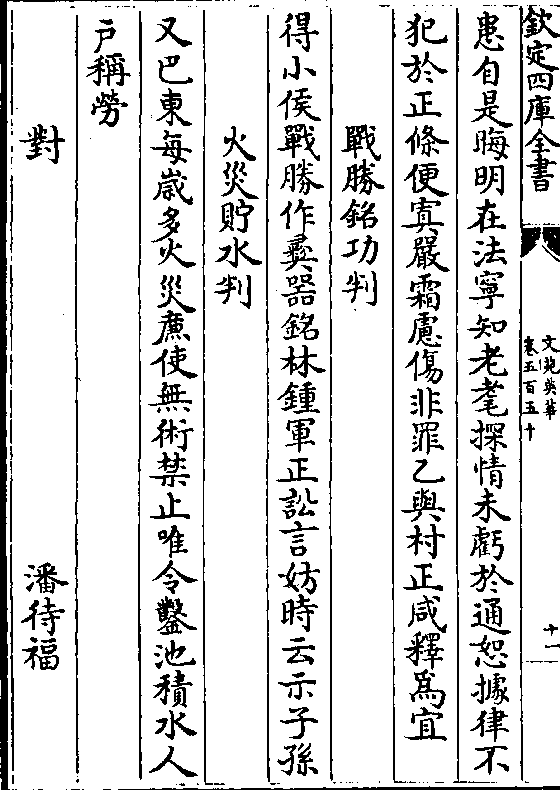 欽定四庫全書
文苑英華
卷五百五十
十一
患自是晦明在法寧知老耄探情未虧於通恕據律不
犯於正條便寘嚴霜慮傷非罪乙與村正咸釋爲宜
戰勝銘功判
得小侯戰勝作彛器銘林鍾軍正訟言妨時云示子孫
火災貯水判
又巴東每歲多火災廉使無術禁止唯令鑿池積水人
户稱勞
對
潘待福